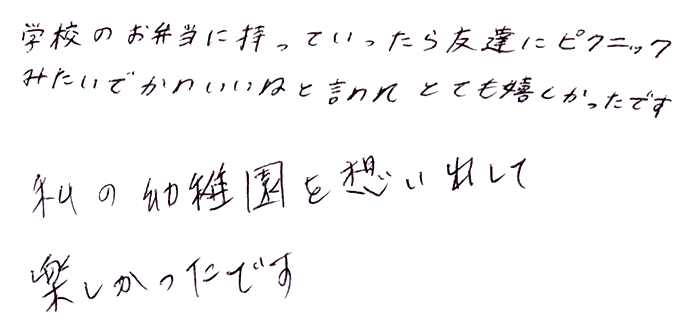 学校のお弁当に持っていったら友達にピクニック
みたいでかわいいねと言われとても嬉しかったです
私の幼稚園を想い出して
楽しかったです